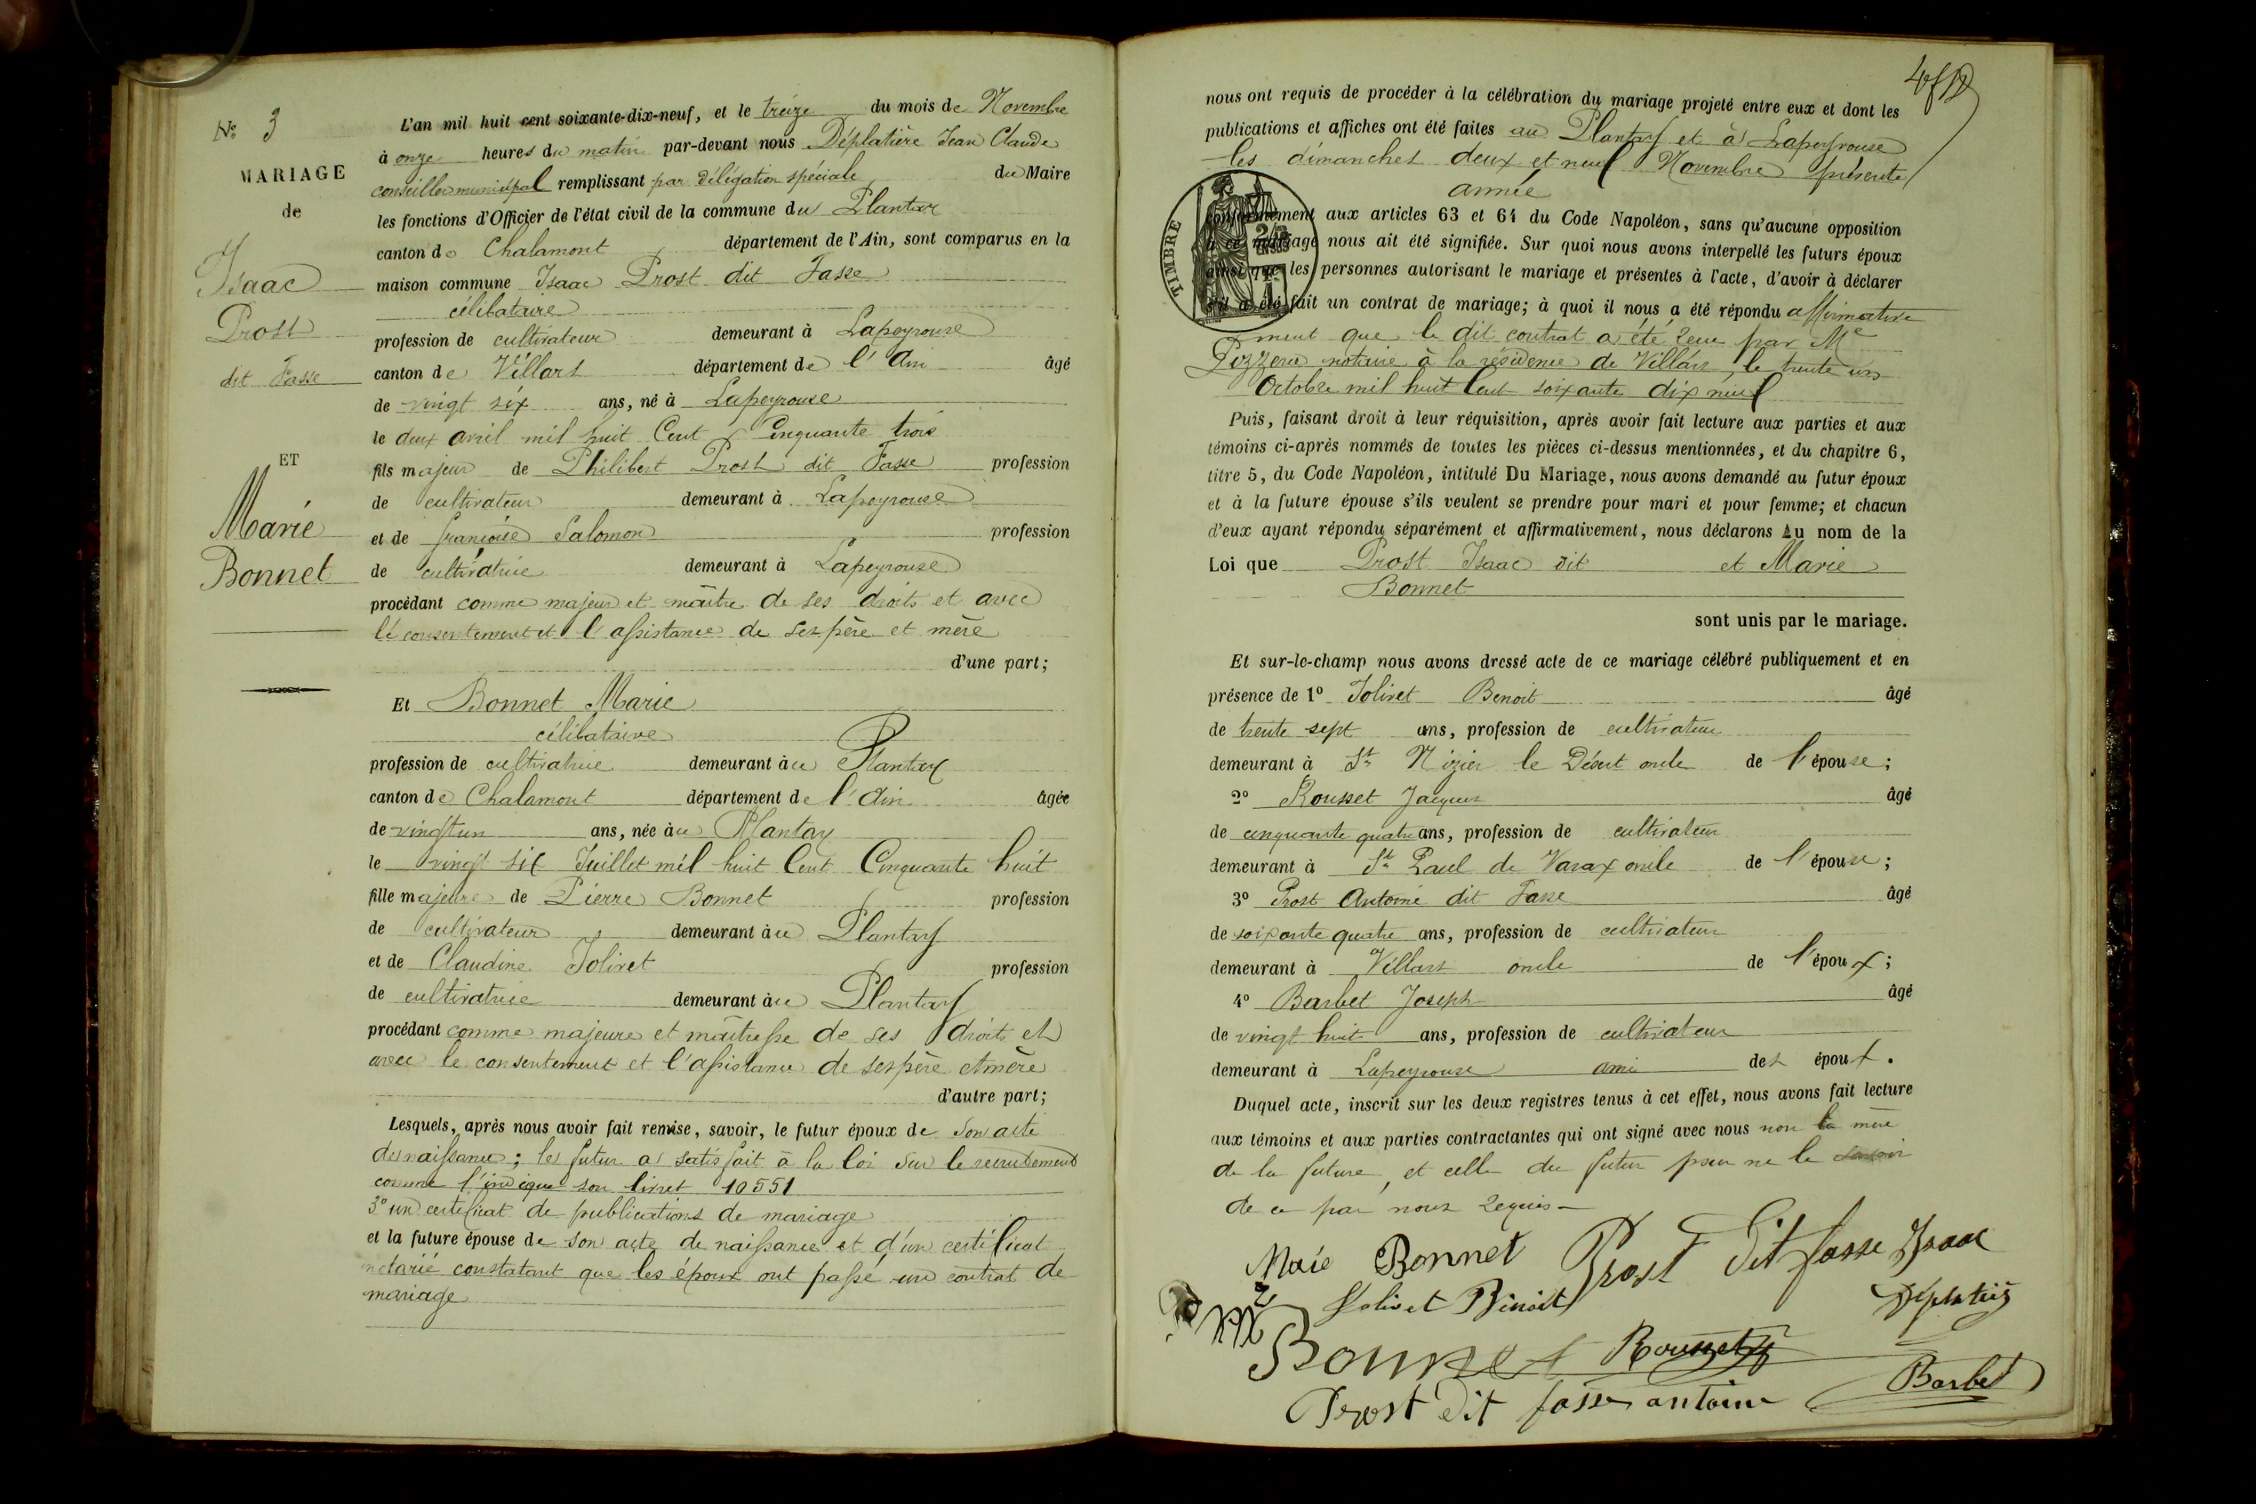 N° 3
MARIAGE
de
Isaac
Prost
dit Fasse
ET
Marie
Bonnet
L'an mil huit cent soixante-dix-neuf, et le treize du mois de Novembre
à onze heures du matin par-devant nous Déplatière Jean Claude
conseiller municipal remplissant par délégation spéciale du Maire
les fonctions d'Officier de l'état civil de la commune du Plantay
canton de Chalamont département de l'Ain, sont comparus en la
maison commune Isaac Prost dit Fasse
célibataire
profession de cultivateur demeurant à Lapeyrouse
canton de Villars département de l'Ain âgé
de vingt six ans, né à Lapeyrouse
le deux avril mil huit Cent Cinquante trois
fils majeur de Philibert Prost dit Fasse profession
de cultivateur demeurant à Lapeyrouse
et de françoise Salomon profession
de cultivatrice demeurant à Lapeyrouse
procédant comme majeur et maître de ses droits et avec
le consentement et l'assistance de ses père et mère
d'une part;
Et Bonnet Marie
célibataire
profession de cultivatrice demeurant au Plantay
canton de Chalamont département de l'Ain âgée
de vingt un ans, née au Plantay
le vingt six Juillet mil huit Cent Cinquante huit
fille majeure de Pierre Bonnet profession
de cultivateur demeurant au Plantay
et de Claudine Jolivet profession
de cultivatrice demeurant au Plantay
procédant comme majeure et maîtresse de ses droits et
avec le consentement et l'assistance de ses père et mère
d'autre part;
Lesquels, après nous avoir fait remise, savoir, le futur époux de son acte
de naissance; le futur a satisfait à la loi sur le recrutement
comme l'indique son livret 10551
3° un certificat de publications de mariage
et la future épouse de son acte de naissance et d'un certificat
notarié constatant que les époux ont passé un contrat de
mariage
nous ont requis de procéder à la célébration du mariage projeté entre eux et dont les
publications et affiches ont été faites au Plantay et à Lapeyrouse
les dimanches deux et neuf Novembre présente
année
TIMBRE
conformément aux articles 63 et 64 du Code Napoléon, sans qu'aucune opposition
à ce mariage nous ait été signifiée. Sur quoi nous avons interpellé les futurs époux
ainsi que les personnes autorisant le mariage et présentes à l'acte, d'avoir à déclarer
s'il a été fait un contrat de mariage; à quoi il nous a été répondu affirmative
ment que le dit contrat a été reçu par Me
notaire à la résidence de Villars, le trente un
Octobre mil huit Cent soixante dix neuf
Puis, faisant droit à leur réquisition, après avoir fait lecture aux parties et aux
témoins ci-après nommés de toutes les pièces ci-dessus mentionnées, et du chapitre 6,
titre 5, du Code Napoléon, intitulé Du Mariage, nous avons demandé au futur époux
et à la future épouse s'ils veulent se prendre pour mari et pour femme; et chacun
d'eux ayant répondu séparément et affirmativement, nous déclarons Au nom de la
Loi que Prost Isaac dit et Marie
Bonnet
sont unis par le mariage.
Et sur-le-champ nous avons dressé acte de ce mariage célébré publiquement et en
présence de 1° Jolivet Benoit âgé
de trente sept ans, profession de cultivateur
demeurant à St Nizier le Désert oncle de l'épouse;
2° Rousset Jacques âgé
de cinquante quatre ans, profession de cultivateur
demeurant à St Paul de Varax oncle de l'épouse;
3° Prost Antoine dit Fasse âgé
de soixante quatre ans, profession de cultivateur
demeurant à Villars oncle de l'époux;
4° Barbet Joseph âgé
de vingt huit ans, profession de cultivateur
demeurant à Lapeyrouse ami des époux.
Duquel acte, inscrit sur les deux registres tenus à cet effet, nous avons fait lecture
aux témoins et aux parties contractantes qui ont signé avec nous non la mère
de la future, et celle du futur pour ne le savoir
de ce par nous requis
Marie Bonnet Prost Dit fasse Isaac
Jolivet Benoit Déplatière
Bonnet Rousset
Prost Dit fasse antoine Barbet